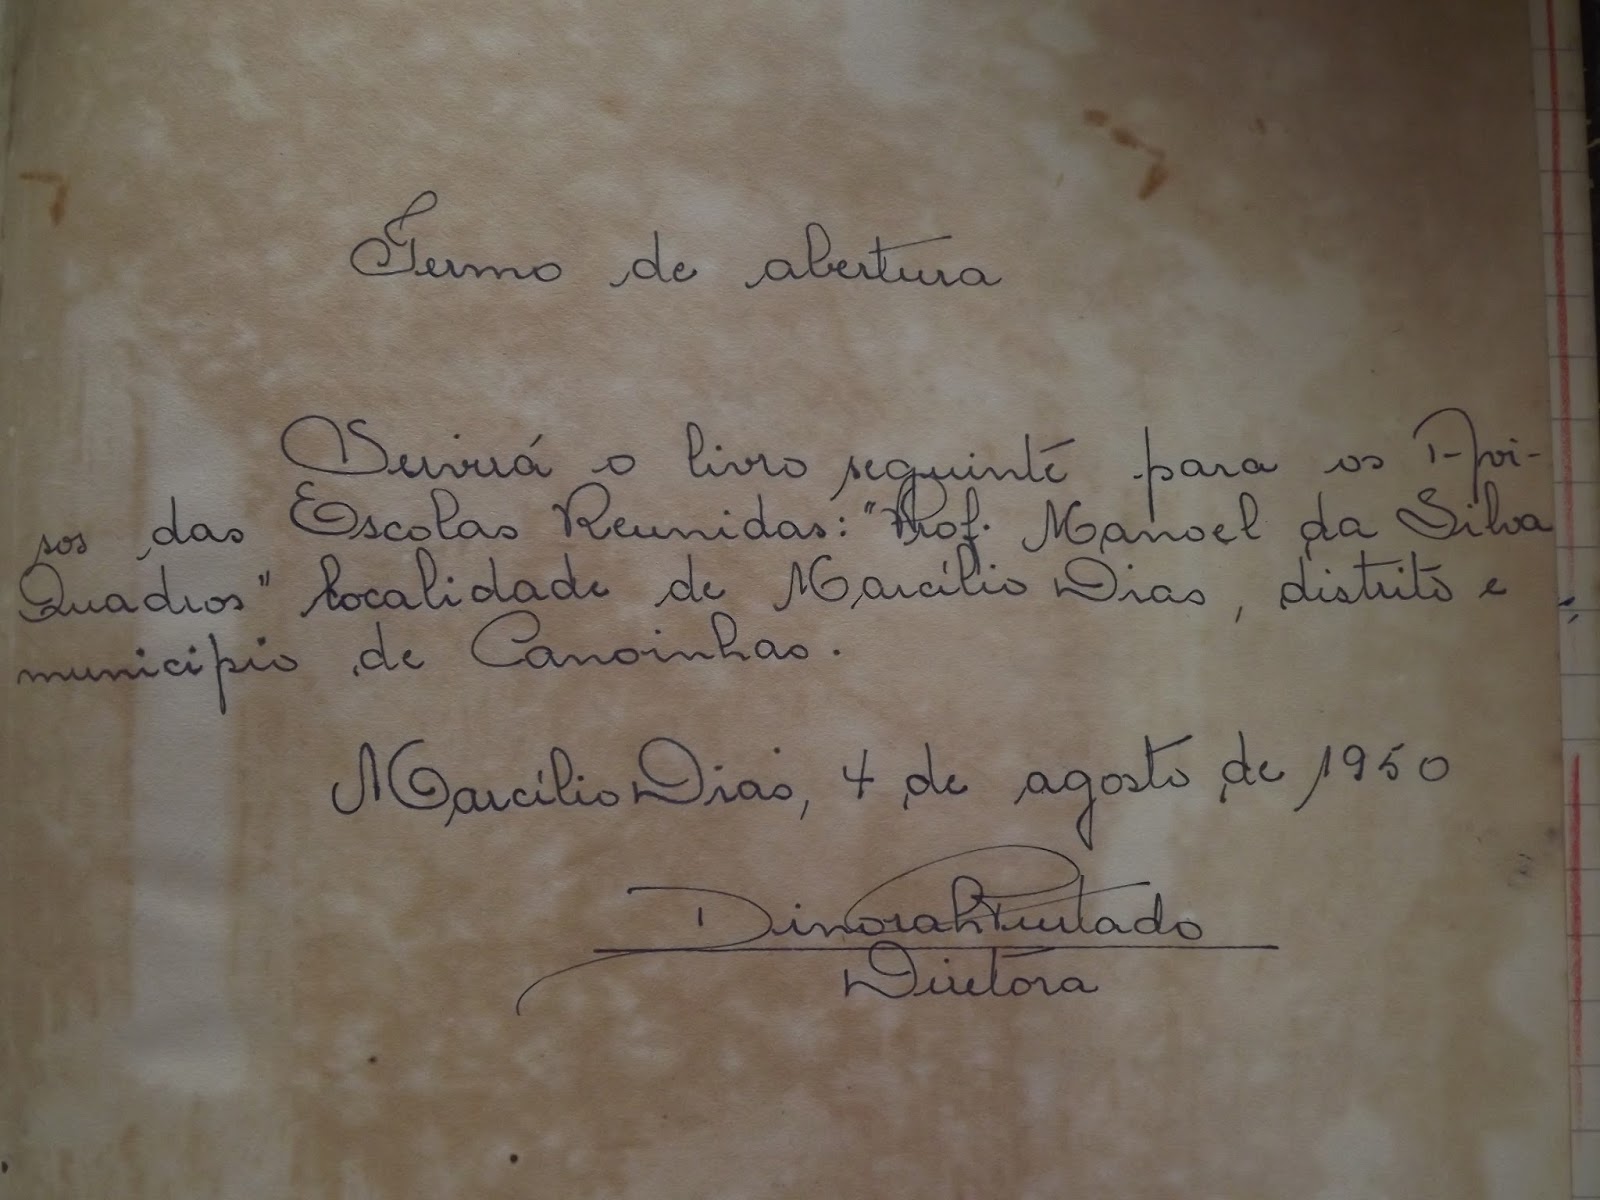 Termo de abertura
Servirá o livro seguinte para os Avi-
sos das Escolas Reunidas: "Prof. Manoel da Silva
Quadros" localidade de Marcílio Dias, distrito e
municipio de Canoinhas.
Marcílio Dias, 4 de agosto de 1950
Dinorah Furtado
Diretora